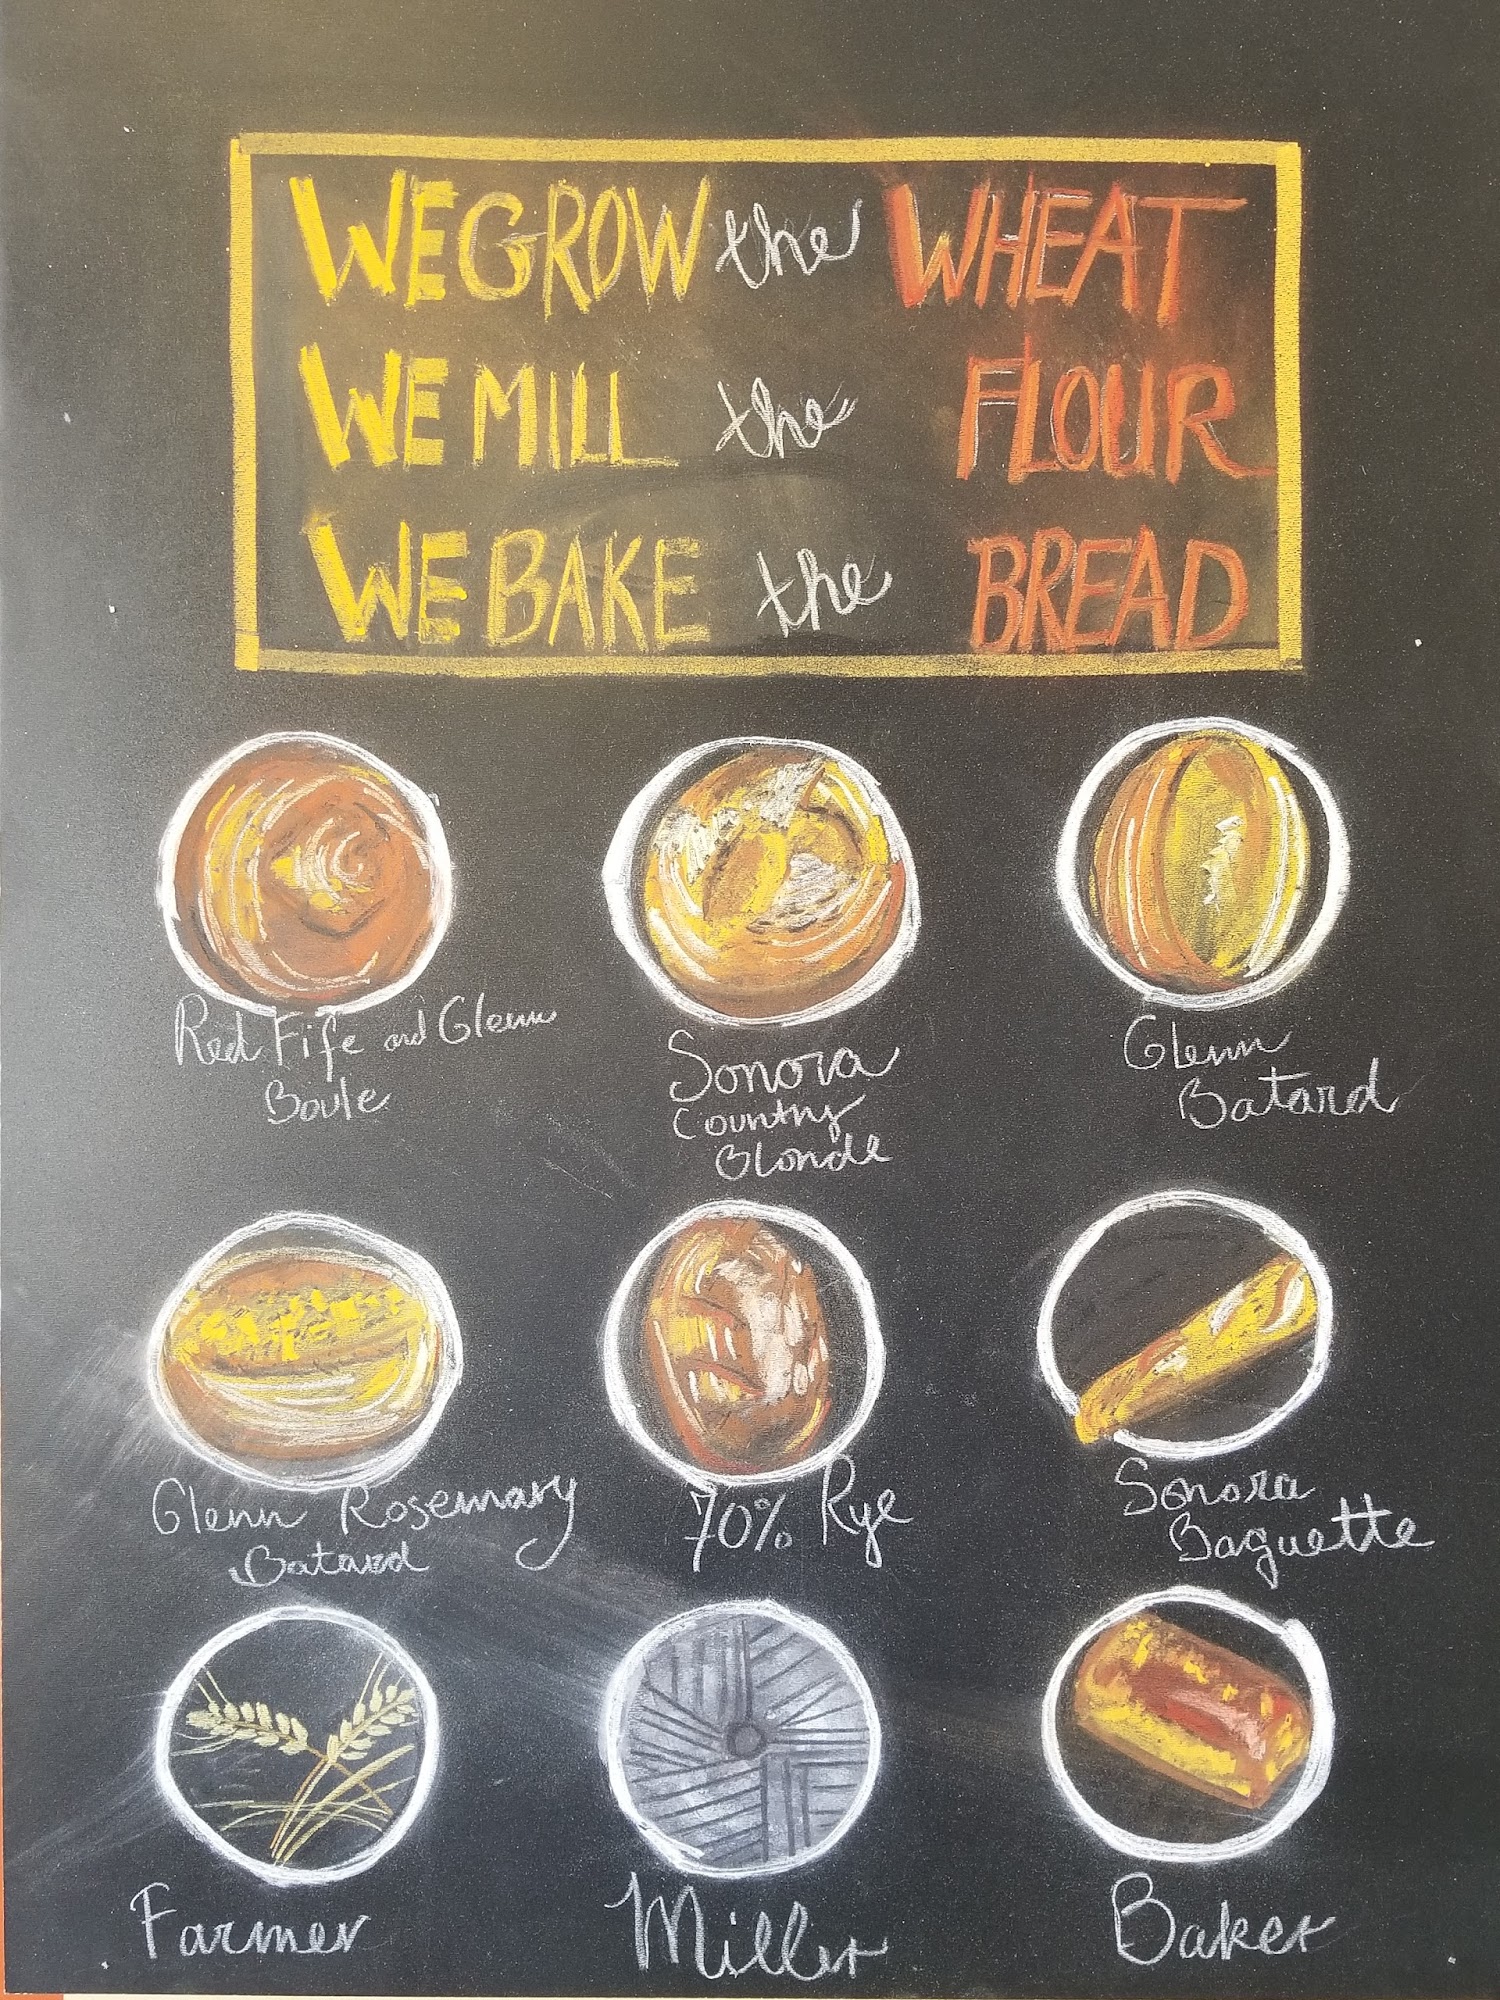 WE GROW the WHEAT
WE MILL the FLOUR
WE BAKE the BREAD
Red Fife and Glenn
Boule
Sonora
Country
Blonde
Glenn
Batard
Glenn Rosemary
Batard
70% Rye
Sonora
Baguette
Farmer
Miller
Baker